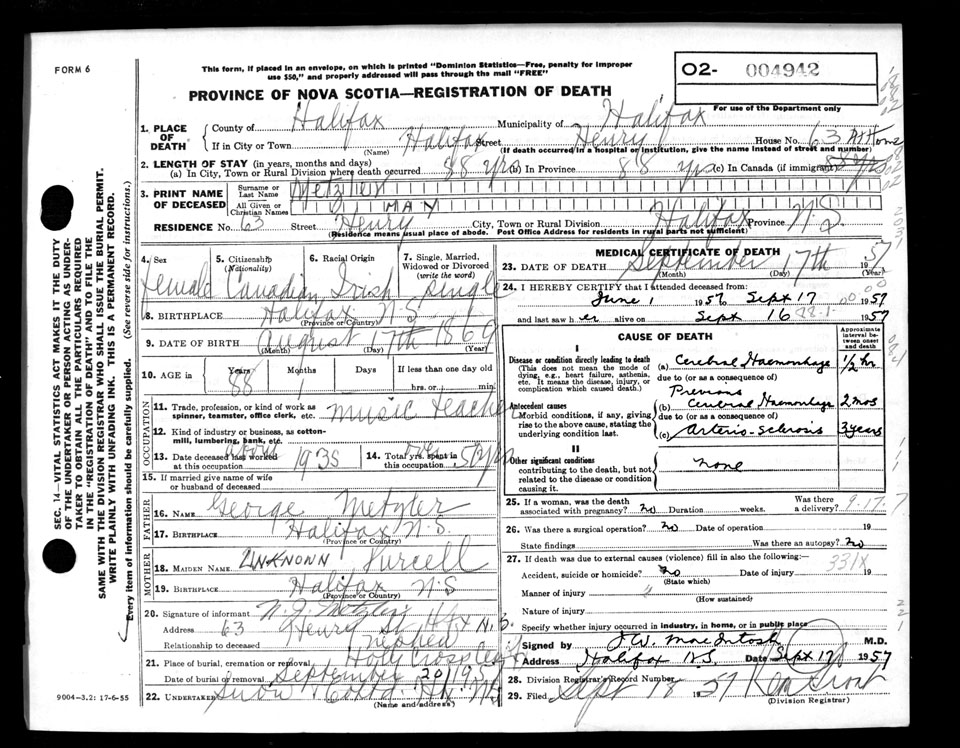 FORM 6
This form, if placed in an envelope, on which is printed "Dominion Statistics—Free, penalty for improper
use $50," and properly addressed will pass through the mail "FREE"
O2- 004942
For use of the Department only
PROVINCE OF NOVA SCOTIA—REGISTRATION OF DEATH
1. PLACE OF DEATH
County of Halifax Municipality of Halifax
If in City or Town Halifax Street Henry House No. 63 At Home
(Name) (If death occurred in a hospital or institution, give the name instead of street and number)
2. LENGTH OF STAY (in years, months and days)
(a) In City, Town or Rural Division where death occurred 88 yrs (b) In Province 88 yrs (c) In Canada (if immigrant)
3. PRINT NAME OF DECEASED
Surname or Last Name Metzler
All Given or Christian Names MAY
RESIDENCE No. 63 Street Henry City, Town or Rural Division Halifax Province N.S.
(Residence means usual place of abode. Post Office Address for residents in rural parts not sufficient)
4. Sex 5. Citizenship (Nationality) 6. Racial Origin 7. Single, Married, Widowed or Divorced (write the word)
Female Canadian Irish Single
8. BIRTHPLACE Halifax N.S.
(Province or Country)
9. DATE OF BIRTH August 17th 1869
(Month) (Day) (Year)
10. AGE in Years Months Days If less than one day old
88 1 hrs. or min.
OCCUPATION
11. Trade, profession, or kind of work as spinner, teamster, office clerk, etc. music teacher
12. Kind of industry or business, as cotton-mill, lumbering, bank, etc.
13. Date deceased last worked at this occupation 1935
14. Total yrs. spent in this occupation 50 yrs
15. If married give name of wife or husband of deceased
FATHER
16. NAME George Metzler
17. BIRTHPLACE Halifax N.S.
(Province or Country)
MOTHER
18. MAIDEN NAME UNKNOWN Purcell
19. BIRTHPLACE Halifax N.S
(Province or Country)
20. Signature of informant N.J. Metzler
Address 63 Henry St Hfx N.S.
Relationship to deceased nephew
21. Place of burial, cremation or removal Holy Cross
Date of burial or removal September 20 19
22. UNDERTAKER Snow
(Name and Address)
MEDICAL CERTIFICATE OF DEATH
23. DATE OF DEATH September 17th 1957
(Month) (Day) (Year)
24. I HEREBY CERTIFY that I attended deceased from:
June 1 1957 Sept 17 1957
and last saw her alive on Sept 16 1957
CAUSE OF DEATH
Approximate interval between onset and death
I
Disease or condition directly leading to death
(This does not mean the mode of dying, e.g., heart failure, asthenia, etc. It means the disease, injury, or complication which caused death.)
(a) Cerebral Haemorrhage 1/2 hr
due to (or as a consequence of)
Antecedent causes
Morbid conditions, if any, giving rise to the above cause, stating the underlying condition last.
Previous
(b) Cerebral Haemorrhage 2 mos
due to (or as a consequence of)
(c) Arterio-sclerosis 3 years
II
Other significant conditions
contributing to the death, but not related to the disease or condition causing it.
none
25. If a woman, was the death associated with pregnancy? no Duration weeks. Was there a delivery?
9.17.7
26. Was there a surgical operation? no Date of operation 19
State findings Was there an autopsy? no
27. If death was due to external causes (violence) fill in also the following:—
331X
Accident, suicide or homicide? no Date of injury 19
(State which)
Manner of injury
(How sustained)
Nature of injury
Specify whether injury occurred in industry, in home, or in public place
Signed by J.W. MacIntosh M.D.
Address Halifax N.S. Date Sept 17 1957
28. Division Registrar's Record Number
29. Filed Sept 18 1957 Ken Grant
(Division Registrar)
SEC. 14—VITAL STATISTICS ACT MAKES IT THE DUTY
OF THE UNDERTAKER OR PERSON ACTING AS UNDER-
TAKER TO OBTAIN ALL THE PARTICULARS REQUIRED
IN THE "REGISTRATION OF DEATH" AND TO FILE THE
SAME WITH THE DIVISION REGISTRAR WHO SHALL ISSUE THE BURIAL PERMIT.
WRITE PLAINLY WITH UNFADING INK. THIS IS A PERMANENT RECORD.
Every item of information should be carefully supplied. (See reverse side for instructions.)
9004-3.2: 17-6-55